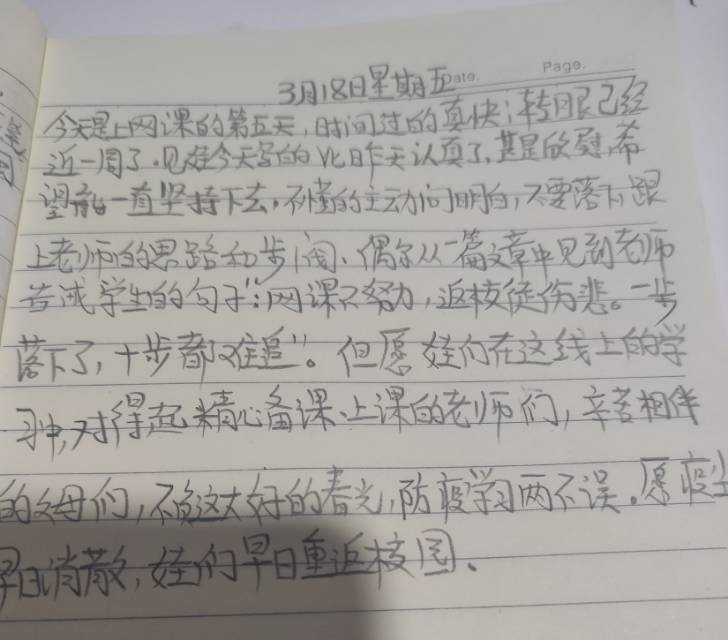 Date.
Page.
3月18日星期五
今天是上网课的第五天,时间过的真快;转眼已经
近一周了.见娃今天写的比昨天认真了,甚是欣慰,希
望能一直坚持下去,不懂的主动问明白,不要落下,跟
上老师的思路和步伐、偶尔从一篇文章中见到老师
告诫学生的句子":网课不努力,返校徒伤悲。一步
落下了,十步都难追"。但愿娃们在这线上的学
习中,对得起精心备课、上课的老师们,辛苦相伴
的父母们,不负这大好的春光,防疫学习两不误.愿疫
早日消散,娃们早日重返校园、